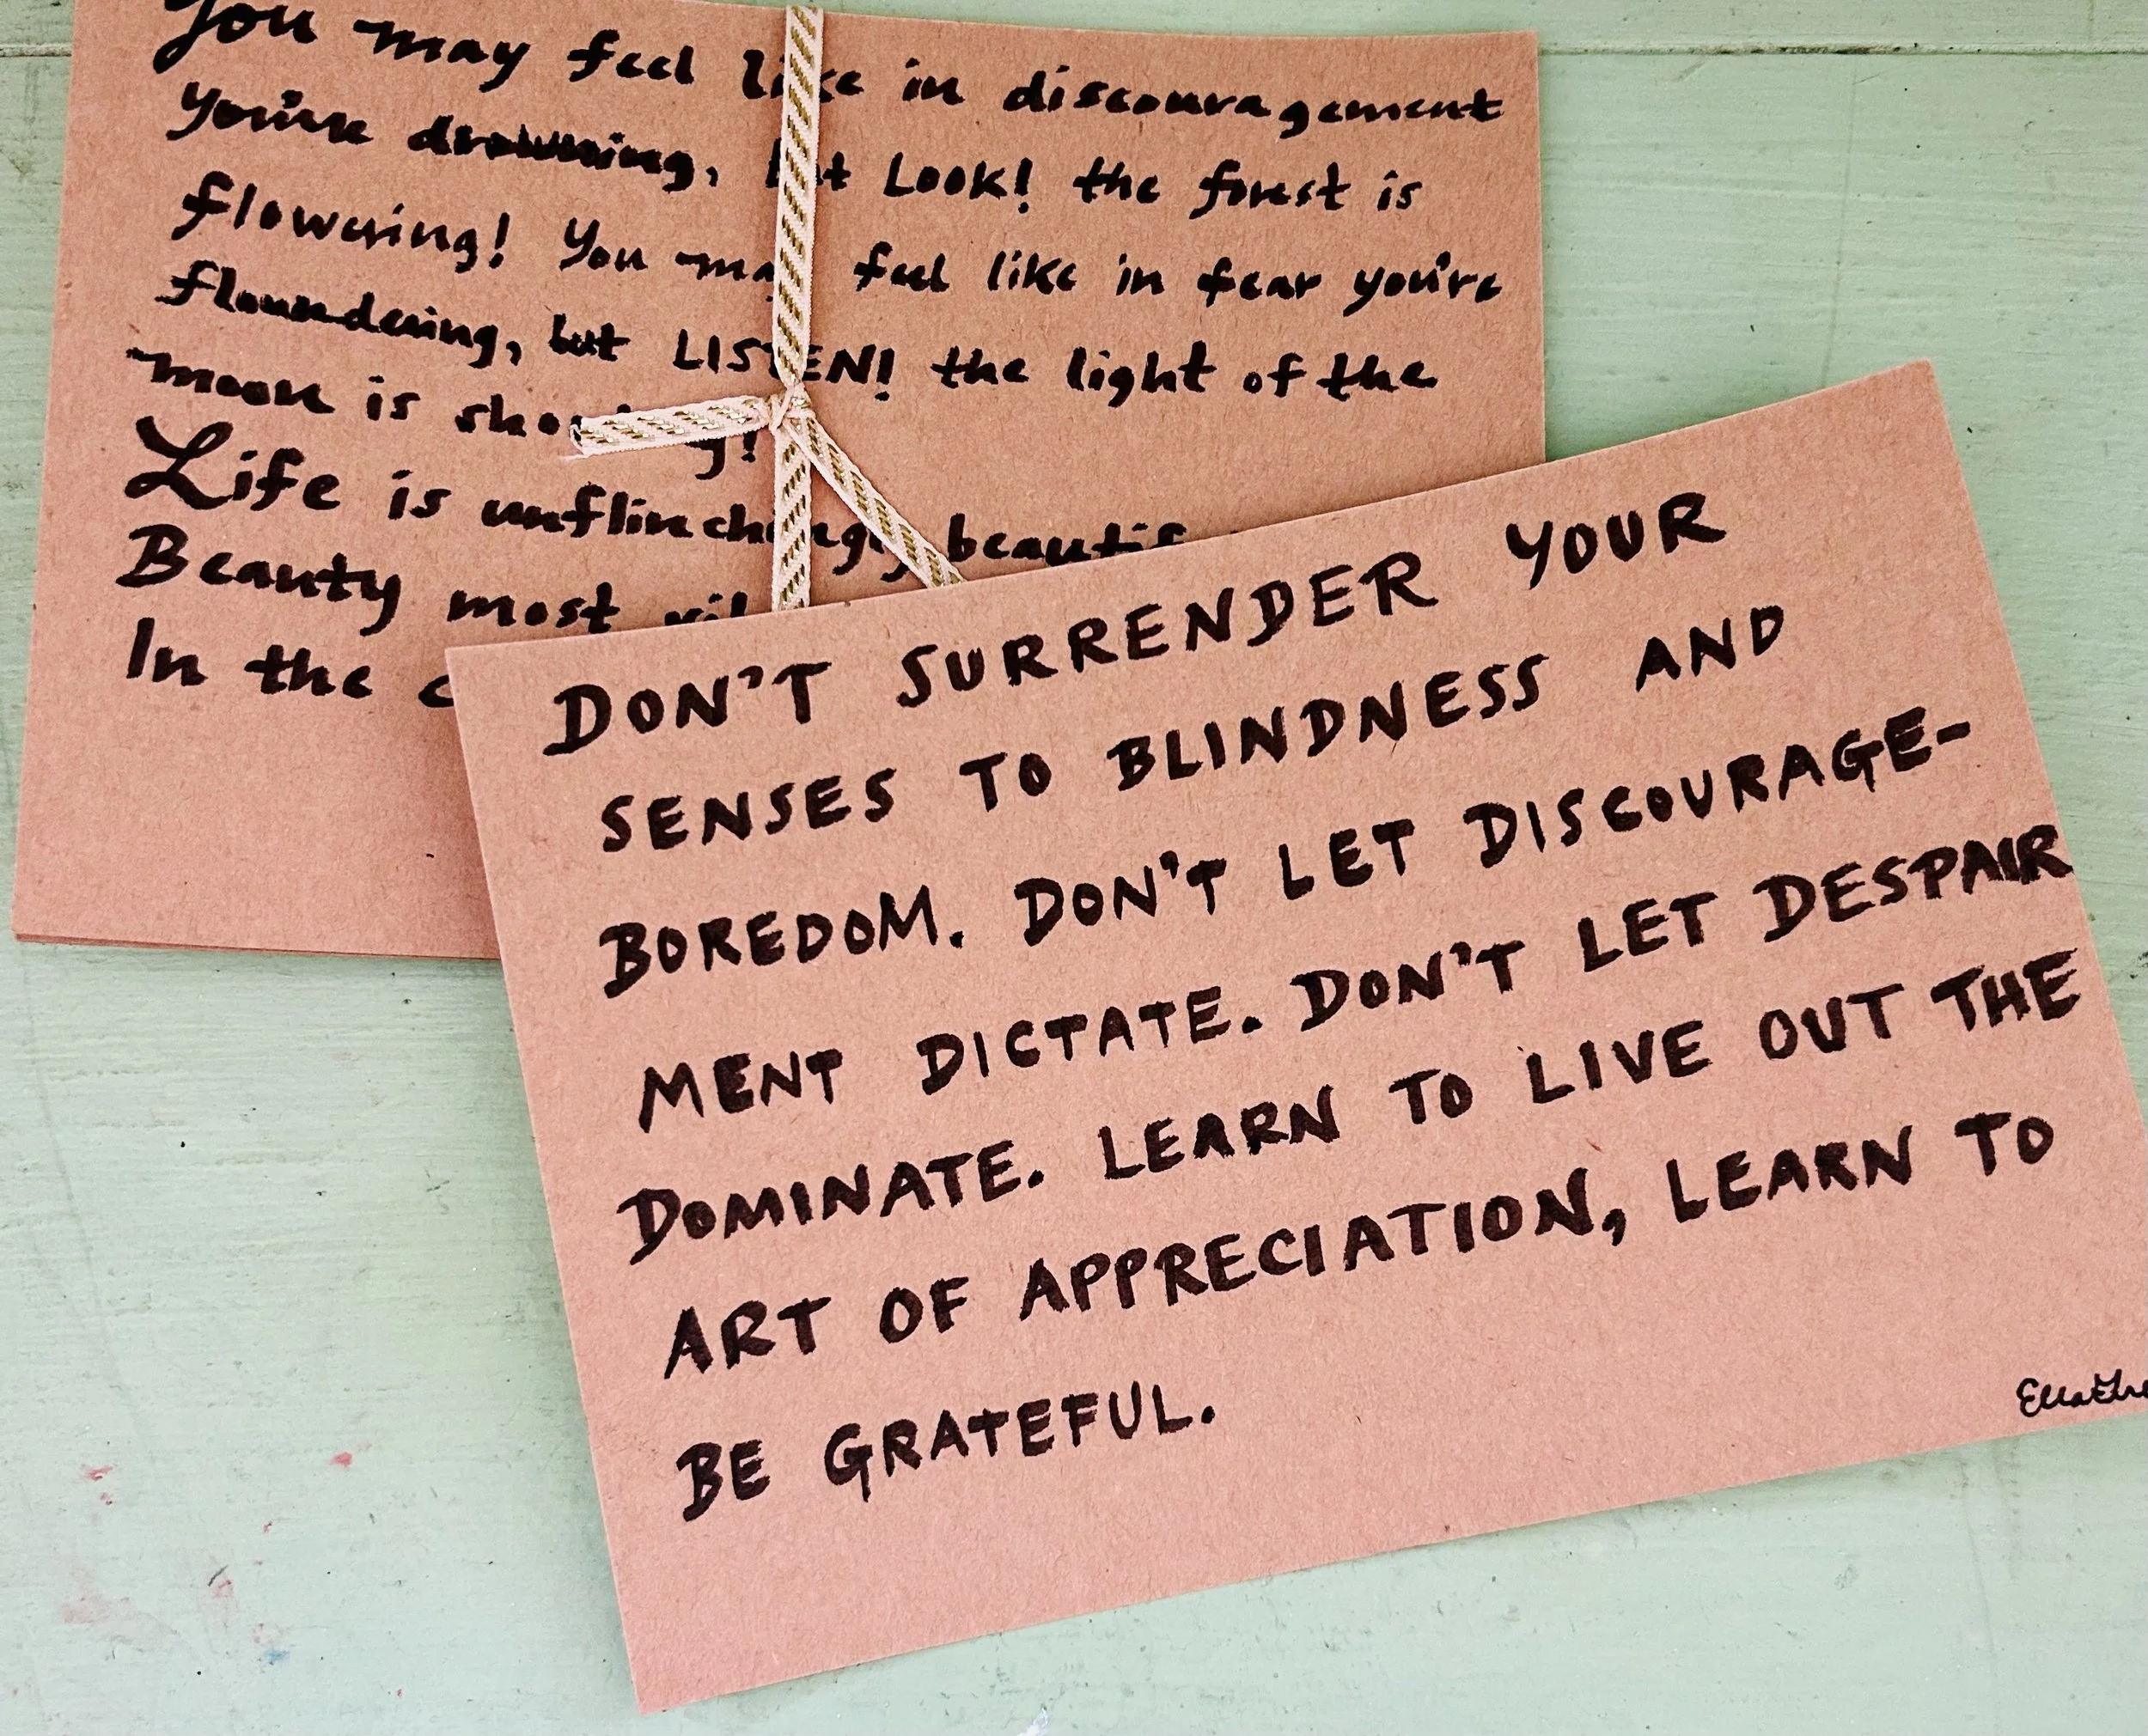 You may feel like in discouragement
you're drowning, but LOOK! the forest is
flowering! You may feel like in fear you're
floundering, but LISTEN! the light of the
moon is
Life is unflinchingly
Beauty most
In the
DON'T SURRENDER YOUR
SENSES TO BLINDNESS AND
BOREDOM. DON'T LET DISCOURAGE-
MENT DICTATE. DON'T LET DESPAIR
DOMINATE. LEARN TO LIVE OUT THE
ART OF APPRECIATION, LEARN TO
BE GRATEFUL.